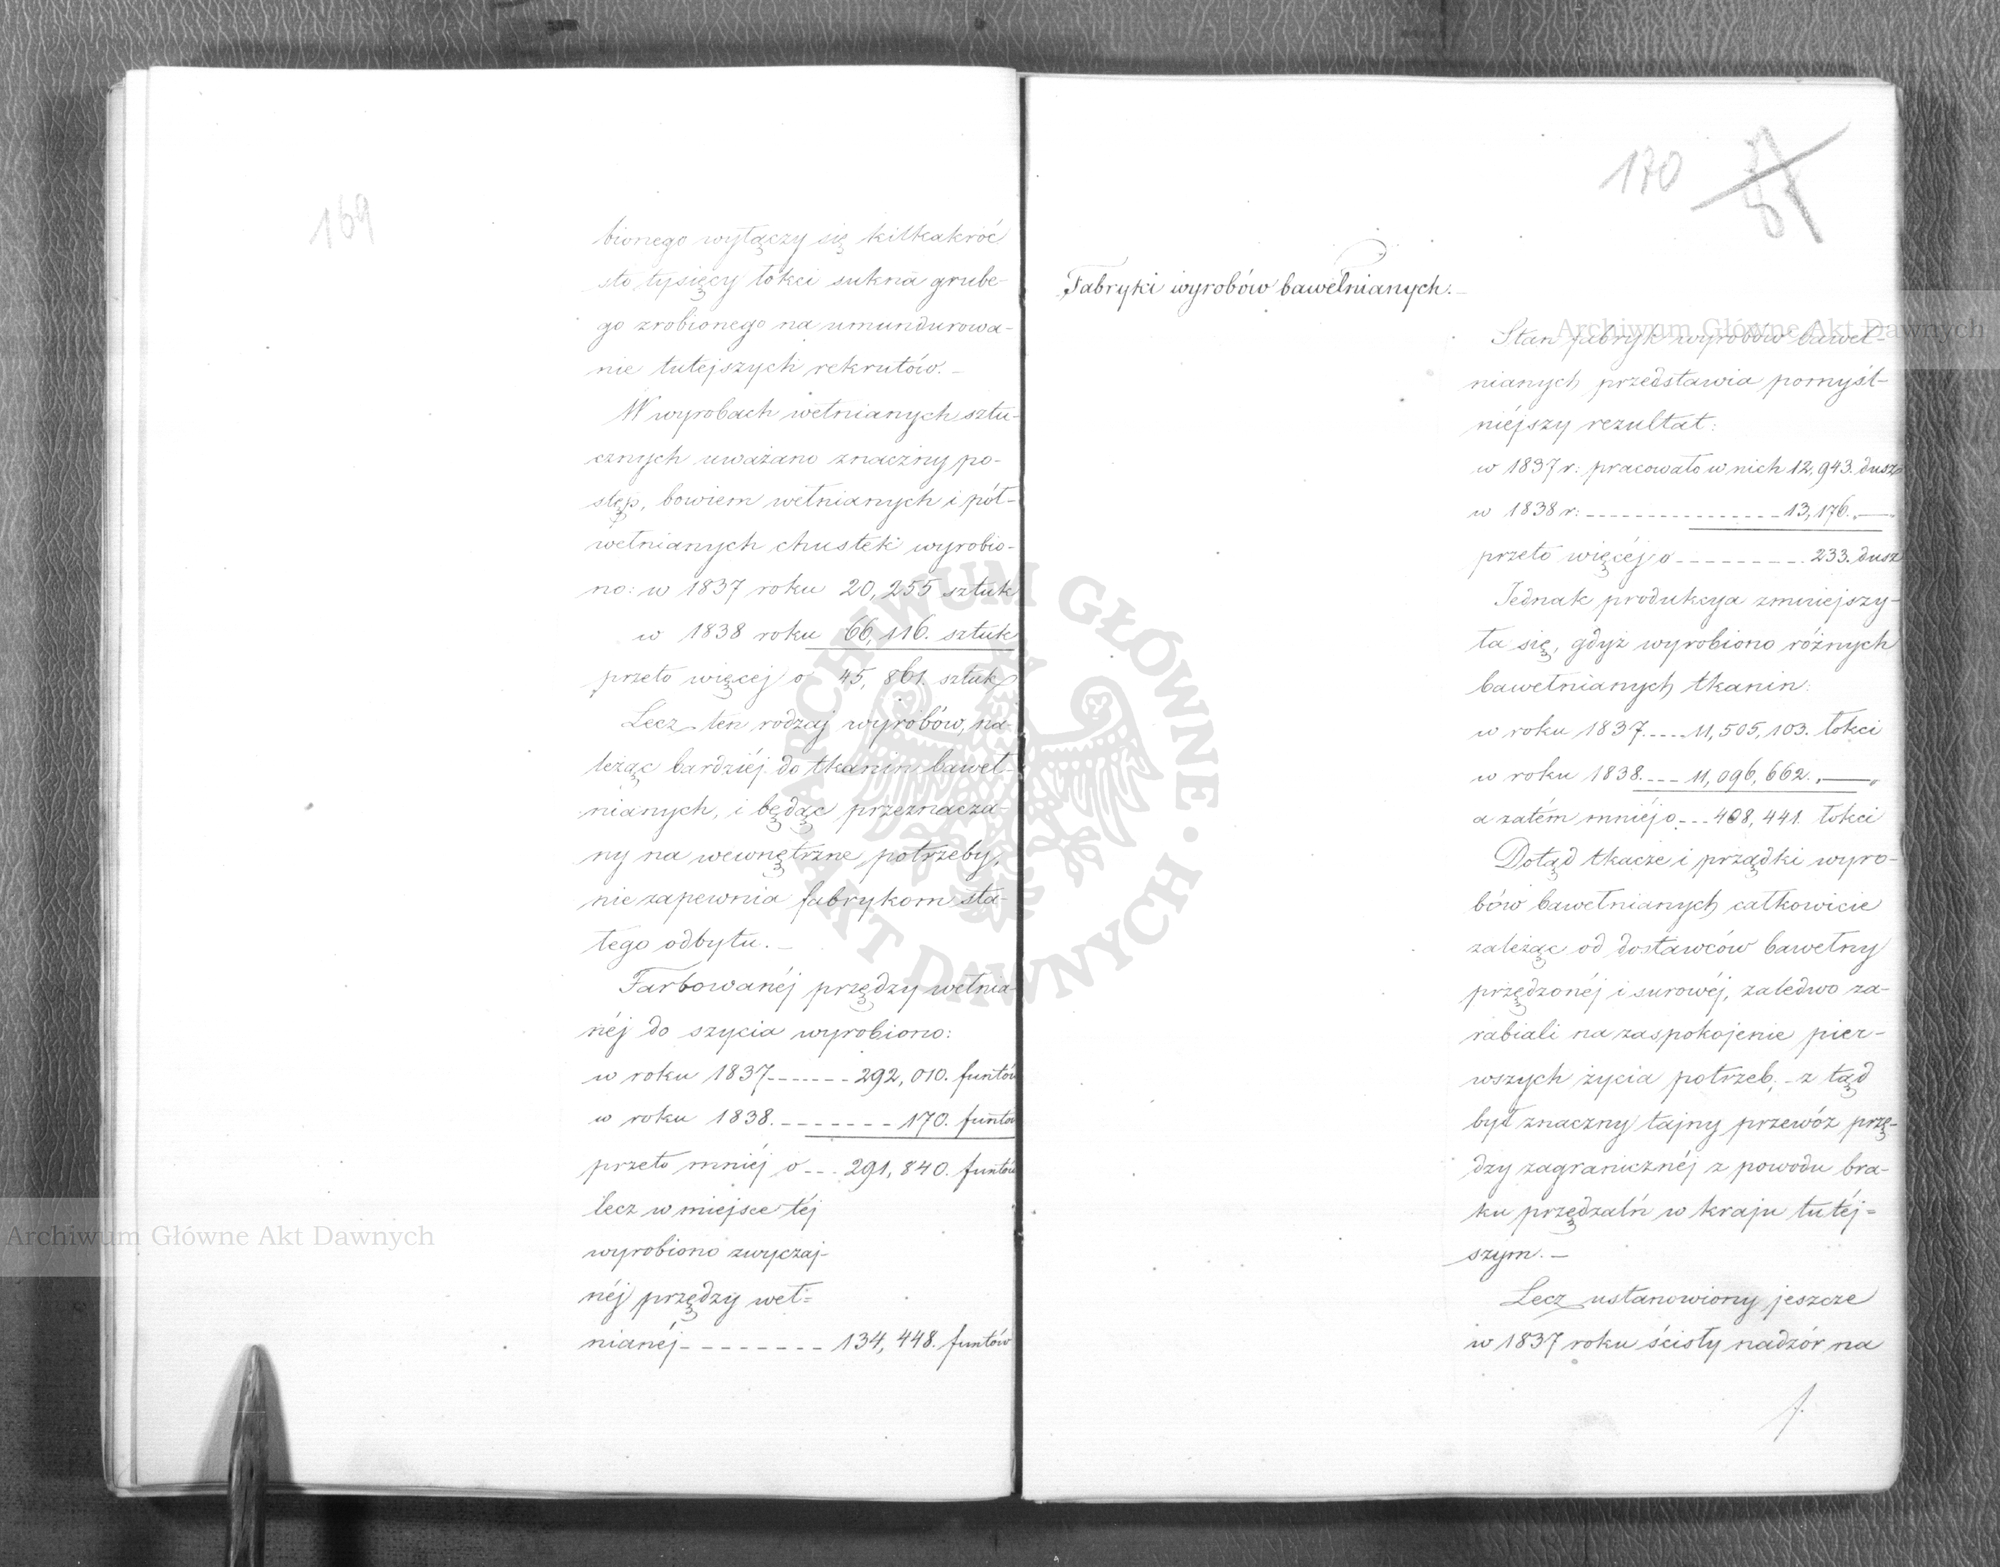 169
bionego wyłączy się kilkakroć
sto tysięcy łokci sukna grube-
go zrobionego na umundurowa-
nie tutejszych rekrutów. —
W wyrobach wełnianych sztu-
cznych uważano znaczny po-
stęp, bowiem wełnianych i pół-
wełnianych chustek wyrobio-
no: w 1837 roku 20,255 sztuk
w 1838 roku 66,116. sztuk
przeto więcej o 45,861. sztuk
Lecz ten rodzaj wyrobów, na-
leżąc bardziéj do tkanin baweł-
nianych, i będąc przeznacza-
ny na wewnętrzne potrzeby,
nie zapewnia fabrykom sta-
łego odbytu. —
Farbowanéj przędzy wełnia-
néj do szycia wyrobiono:
w roku 1837 ------- 292,010. funtów
w roku 1838. ------- 170. funtów
przeto mniéj o --- 291,840. funtów
lecz w miejsce téj
wyrobiono zwyczaj-
néj przędzy weł=
nianéj -------- 134,448. funtów
170
Fabryki wyrobów bawełnianych. —
Stan fabryk wyrobów baweł-
nianych przedstawia pomyśl-
niéjszy rezultat:
w 1837 r: pracowało w nich 12,943. dusz
w 1838 r: --------------- 13,176. „—„
przeto więcéj o --------- 233. dusz
Jednak produkcya zmniejszy-
ła się, gdyż wyrobiono różnych
bawełnianych tkanin:
w roku 1837. ---- 11,505,103. łokci
w roku 1838. --- 11,096,662. „—„
a zatém mniéj o --- 408,441. łokci
Dotąd tkacze i prządki wyro-
bów bawełnianych całkowicie
zależąc od dostawców bawełny
przędzonéj i surowéj, zaledwo za-
rabiali na zaspokojenie pier-
wszych życia potrzeb, - z tąd
był znaczny tajny przewóz przę-
dzy zagranicznéj z powodu bra-
ku przędzalń w kraju tutéj=
szym. —
Lecz ustanowiony jeszcze
w 1837 roku ścisły nadzór na
Archiwum Główne Akt Dawnych
Archiwum Główne Akt Dawnych
ARCHIWUM GŁÓWNE AKT DAWNYCH